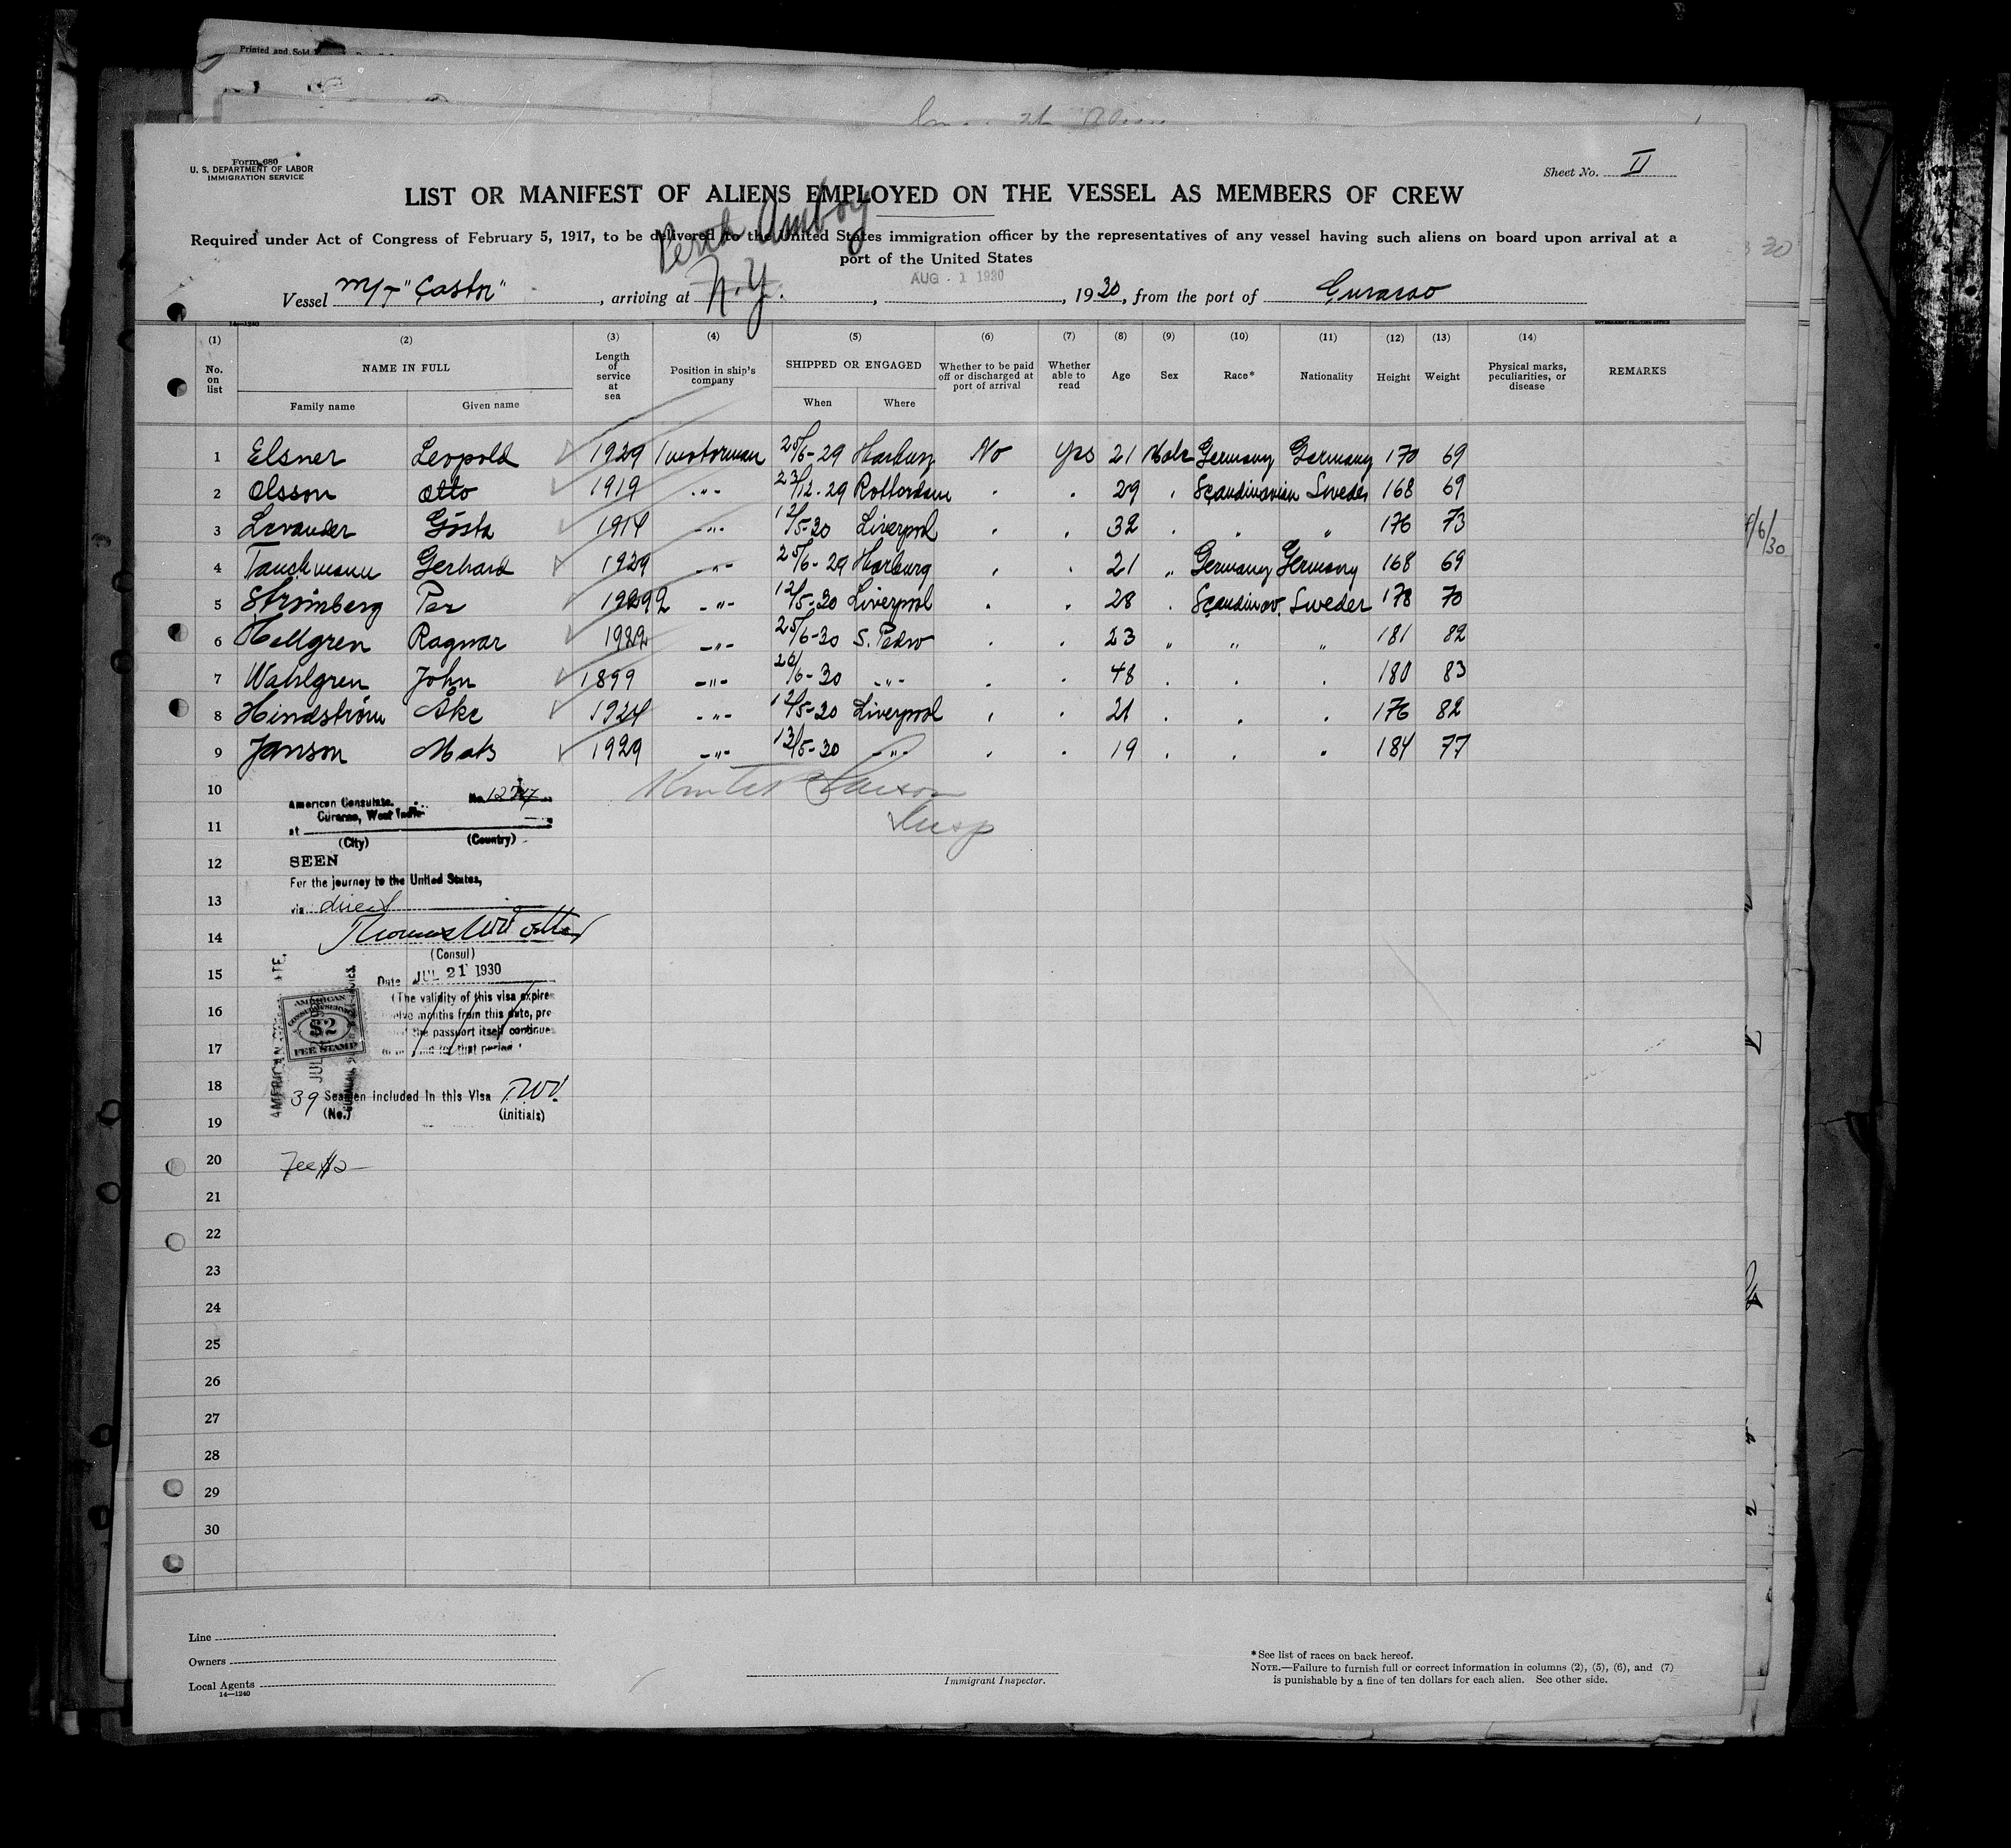 Printed and Sold
Form 680
U. S. DEPARTMENT OF LABOR
IMMIGRATION SERVICE
Sheet No. II
LIST OR MANIFEST OF ALIENS EMPLOYED ON THE VESSEL AS MEMBERS OF CREW
Required under Act of Congress of February 5, 1917, to be delivered to the United States immigration officer by the representatives of any vessel having such aliens on board upon arrival at a
port of the United States
Perth Amboy
Vessel M/T "Castor", arriving at N.Y., AUG - 1 1930, 1930, from the port of Curacao
14—1240
(1) (2) (3) (4) (5) (6) (7) (8) (9) (10) (11) (12) (13) (14)
No. on list NAME IN FULL Length of service at sea Position in ship's company SHIPPED OR ENGAGED Whether to be paid off or discharged at port of arrival Whether able to read Age Sex Race* Nationality Height Weight Physical marks, peculiarities, or disease REMARKS
Family name Given name When Where
1 Elsner Leopold 1929 Motorman 25/6-29 Harburg No Yes 21 Male Germany Germany 170 69
2 Olsson Otto 1919 -"- 23/12-29 Rotterdam . . 29 . Scandinavian Sweden 168 69
3 Levander Gösta 1914 -"- 12/5-30 Liverpool . . 32 . . " 176 73
4 Tauchmann Gerhard 1929 -"- 25/6-29 Harburg . . 21 " Germany Germany 168 69
5 Strömberg Per -"- 12/5-30 Liverpool . . 28 . Scandinav. Sweden 178 70
6 Hellgren Ragnar -"- 25/6-30 S. Pedro . . 23 " " " 181 82
7 Wahlgren John 1899 -"- 26/6-30 -"- . . 48 . . . 180 83
8 Hindström Åke 1924 -"- 12/5-30 Liverpool . . 21 . . . 176 82
9 Janson Mats 1929 -"- 13/5-30 -"- . . 19 . . . 184 77
10
11
12
13
14
15
16
17
18
19
20
21
22
23
24
25
26
27
28
29
30
Insp
American Consulate. No.
Curacao, West Indies
at
(City) (Country)
SEEN
For the journey to the United States,
via direct
(Consul)
Date JUL 21 1930
(The validity of this visa expires
twelve months from this date, pro
the passport itself continues
for that period
AMERICAN
CONSULAR SERVICE
$2
FEE STAMP
39 Seamen included in this Visa T.W.V.
(No.) (initials)
Fee $2—
Line
Owners
Local Agents
14—1240
Immigrant Inspector.
*See list of races on back hereof.
NOTE.—Failure to furnish full or correct information in columns (2), (5), (6), and (7)
is punishable by a fine of ten dollars for each alien. See other side.